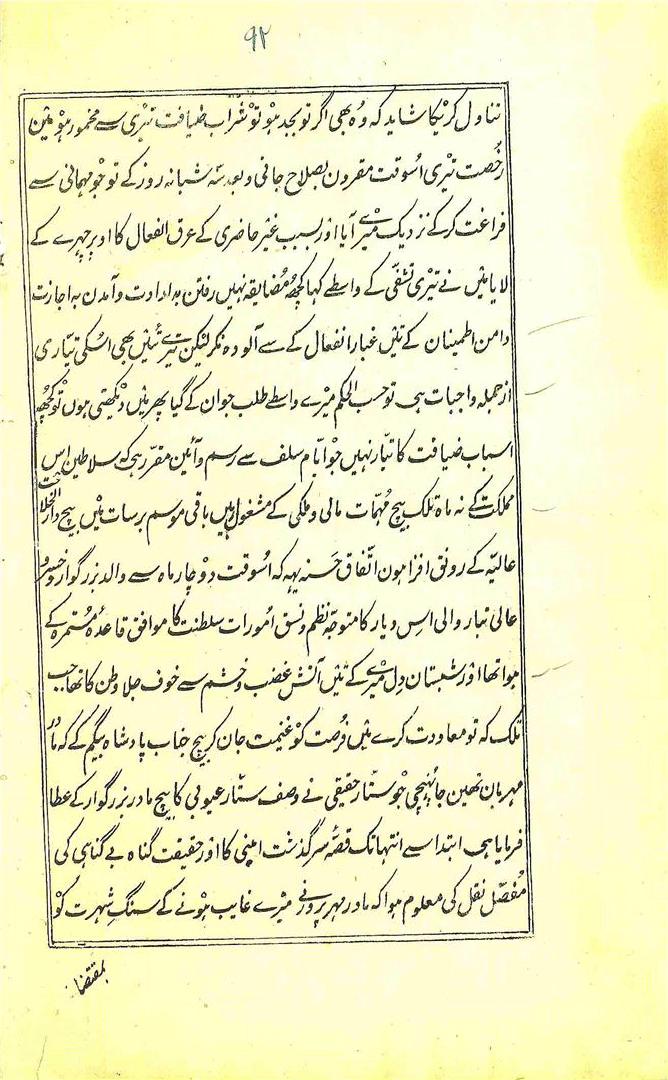 ۹۲
تناول کریگا شاید کہ وہ بھی اگر تو بجد ہو تو شراب ضیافت تیری سے مخمور ہو مین
رخصت تیری اسوقت مقرون بصلاح جانی و بعد سہ شبانہ روز کے تو جو مہمانی سے
فراغت کرکے نزدیک میرے آیا اور بسبب غیر حاضری کے عرق انفعال کا اوپر چہرے کے
لایا میں نے تیری تشفی کے واسطے کہا کچھ مضایقہ نہیں رفتن بہ ارادت و آمدن بہ اجازت
دامن اطمینان کے تئیں غبار انفعال کے سے آلودہ نکر لیکن تیرے تئیں بھی اسکی تیاری
از جملہ واجبات ہی تو حسب الحکم میرے واسطے طلب جوان کے گیا پھر میں دیکھتی ہوں تو کچھ
اسباب ضیافت کا تیار نہیں جو ایام سلف سے رسم و آئین مقرر ہی کہ سلاطین اس
مملکت کے نہ ماہ تلک بیچ مہمات مالی و ملکی کے مشغول رہیں باقی موسم برسات میں بیچ
عالیہ کے رونق افزا ہون اتفاق حسنہ یہہ کہ اسوقت دو چار ماہ سے والد بزرگوار خسرو
عالی تبار والی اس دیار کا متوجہ نظم و نسق امورات سلطنت کا موافق قاعدہ مستمرہ کے
ہوا تھا اور شبستان دل میرے کے تئیں آتش غضب و خشم سے خوف جلا وطن کا تھا جب
تلک کہ تو معاودت کرے میں فرصت کو غنیمت جان کر بیچ جناب پادشاہ بیگم کے کہ مادر
مہربان تھین جا پہنچی جو ستار حقیقی نے وصف ستار عیوبی کا بیچ مادر بزرگوار کے عطا
فرمایا ہی ابتدا سے انتہا تک قصۂ سرگذشت اپنی کا اور حقیقت گناہ بے گناہی کی
مفصل نقل کی معلوم ہوا کہ مادر مہر پرور نے میرے غایب ہونے کے سنگ شہرت کو
بمقتضا